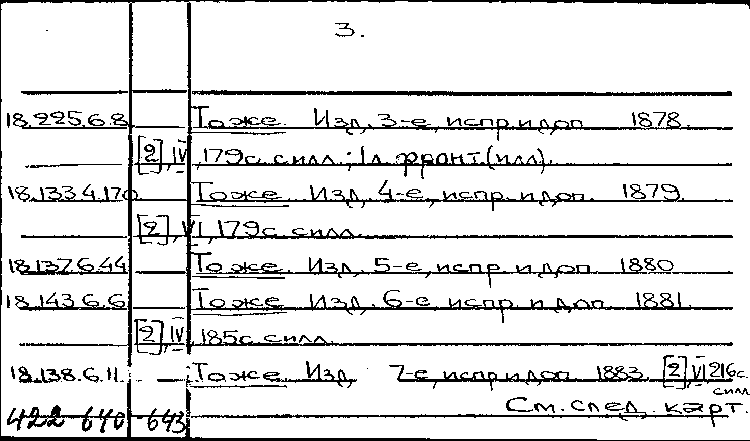 3.
18.225.6.8 Тоже. Изд. 3-е, испр. и доп. 1878.
[2], IV, 179 с. с илл.; 1 л. фронт. (илл).
18.133.4.170 Тоже. Изд. 4-е, испр. и доп. 1879.
[2], VI, 179 с. с илл.
18.137.6.44 Тоже. Изд. 5-е, испр. и доп. 1880
18.143.6.6 Тоже. Изд. 6-е, испр. и доп. 1881.
[2], IV, 185 с. с илл.
18.138.6.11. Тоже. Изд. 7-е, испр. и доп. 1883. [2], VI, 216 с. с илл
См. след. карт.
422 640-643